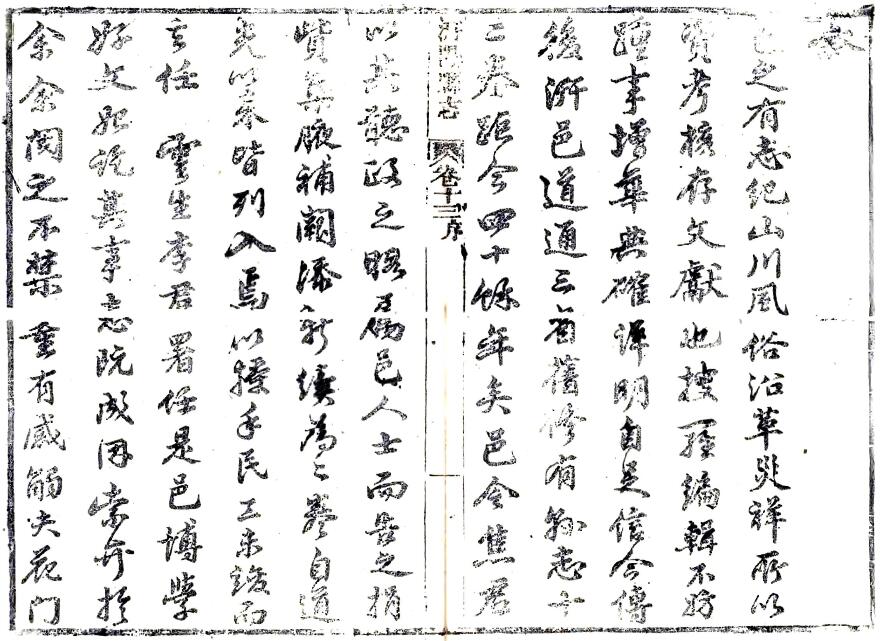 敘
邑之有志紀山川風俗沿革災祥所以
資考核存文獻也搜羅編輯不妨
踵事增華典確詳明自足信今傳
後汧邑道通三省舊修有縣志十
二卷距今四十餘年矣邑令焦君
汧陽縣志 卷十三序
以其聽政之暇邑人士而告之捐
貲集腋補闕添新續為二卷自道
光以來皆列入焉以手民工未竣而
去任 雲生李君署任是邑博學
好文訖其事志既成因索弁於
余余閱之不禁重有感觸夫花門